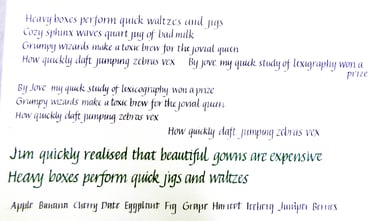 Heavy boxes perform quick waltzes and jigs
Cozy sphinx waves quart jug of bad milk
Grumpy wizards make a toxic brew for the jovial queen
How quickly daft jumping zebras vex By Jove my quick study of lexicography won a
prize
By Jove my quick study of lexicography won a prize
Grumpy wizards make a toxic brew for the jovial queen
How quickly daft jumping zebras vex
How quickly daft jumping zebras vex
Jim quickly realised that beautiful gowns are expensive
Heavy boxes perform quick jigs and waltzes
Apple Banana Cherry Date Eggplant Fig Grape Haricot Iceberg Juniper Berries